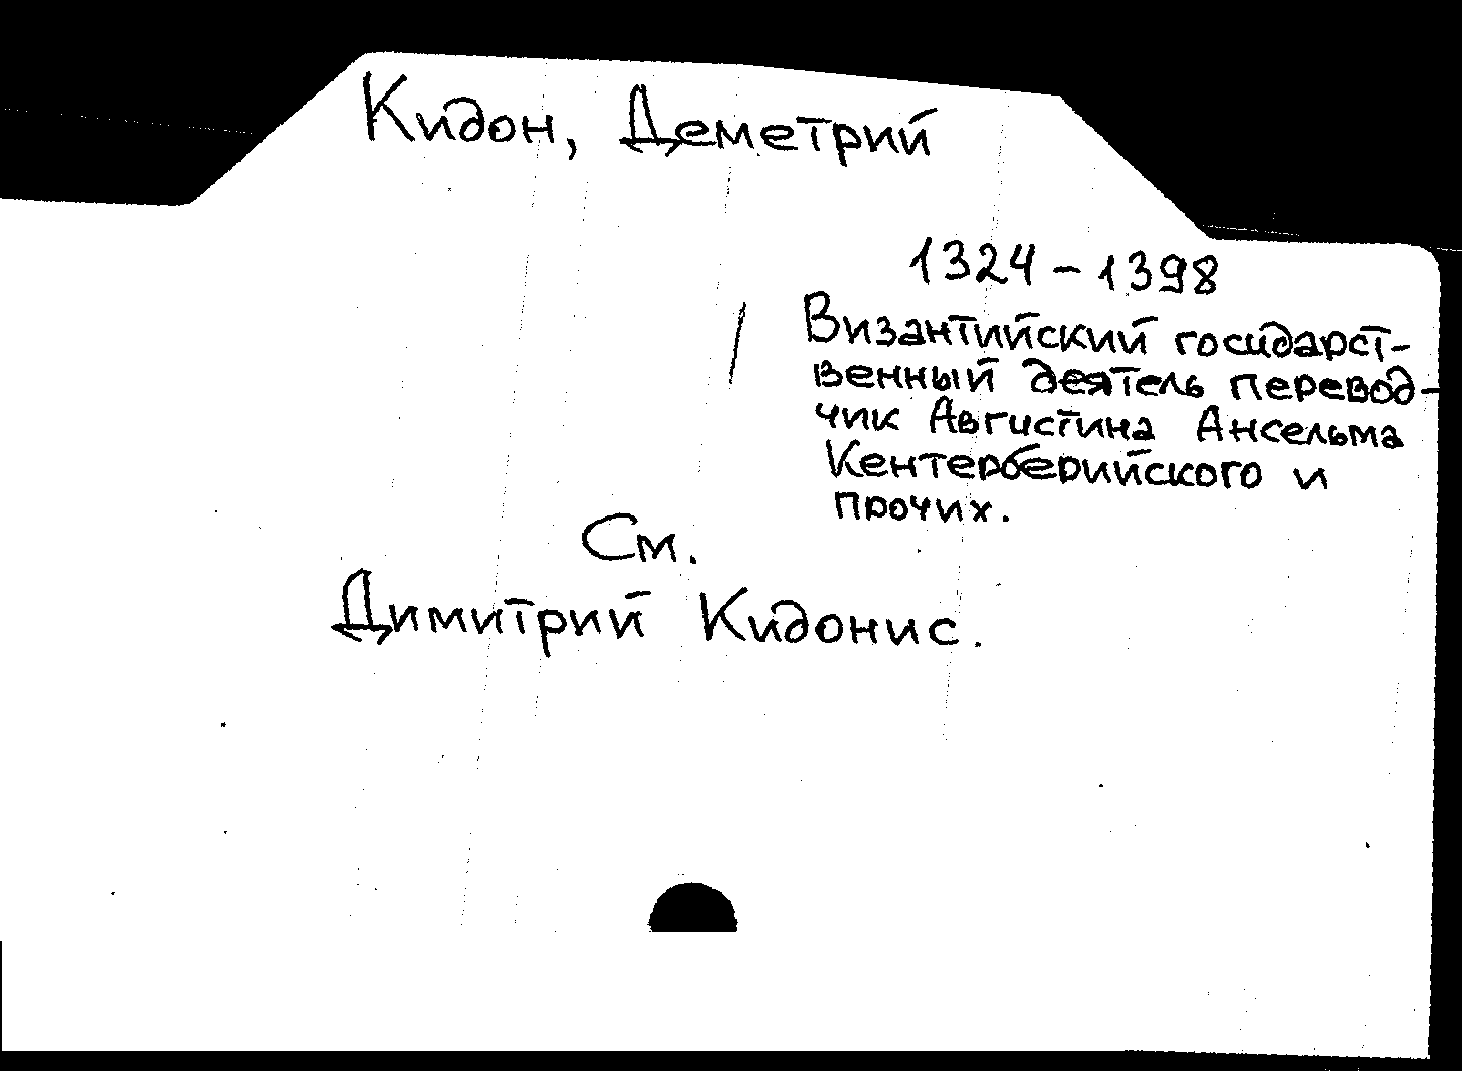 Кидон, Деметрий
1324 – 1398
Византийский государст-
венный деятель перевод-
чик Августина Ансельма
Кентерберийского и
прочих.
См.
Димитрий Кидонис.